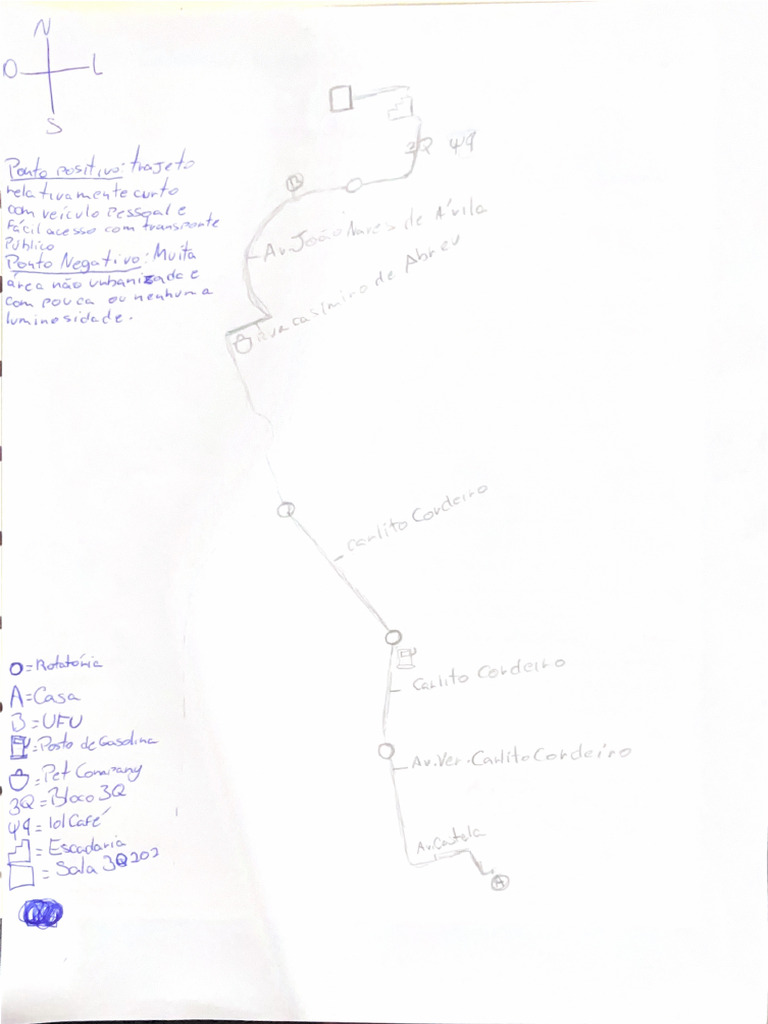 N
O
L
S
Ponto positivo: trajeto
relativamente curto
com veículo Pessoal e
Fácil acesso com transporte
Público
Ponto Negativo: Muita
área não urbanizada e
com pouca ou nenhuma
luminosidade.
3Q
B
Av. João Naves de Ávila
Rua casimiro de Abreu
Carlito Cordeiro
Carlito Cordeiro
Av. Ver. Carlito Cordeiro
Av. Castela
A
= Rotatória
A = Casa
B = UFU
= Posto de Gasolina
= Pet Company
3Q = Bloco 3Q
= lol Café
= Escadaria
= Sala 3Q202